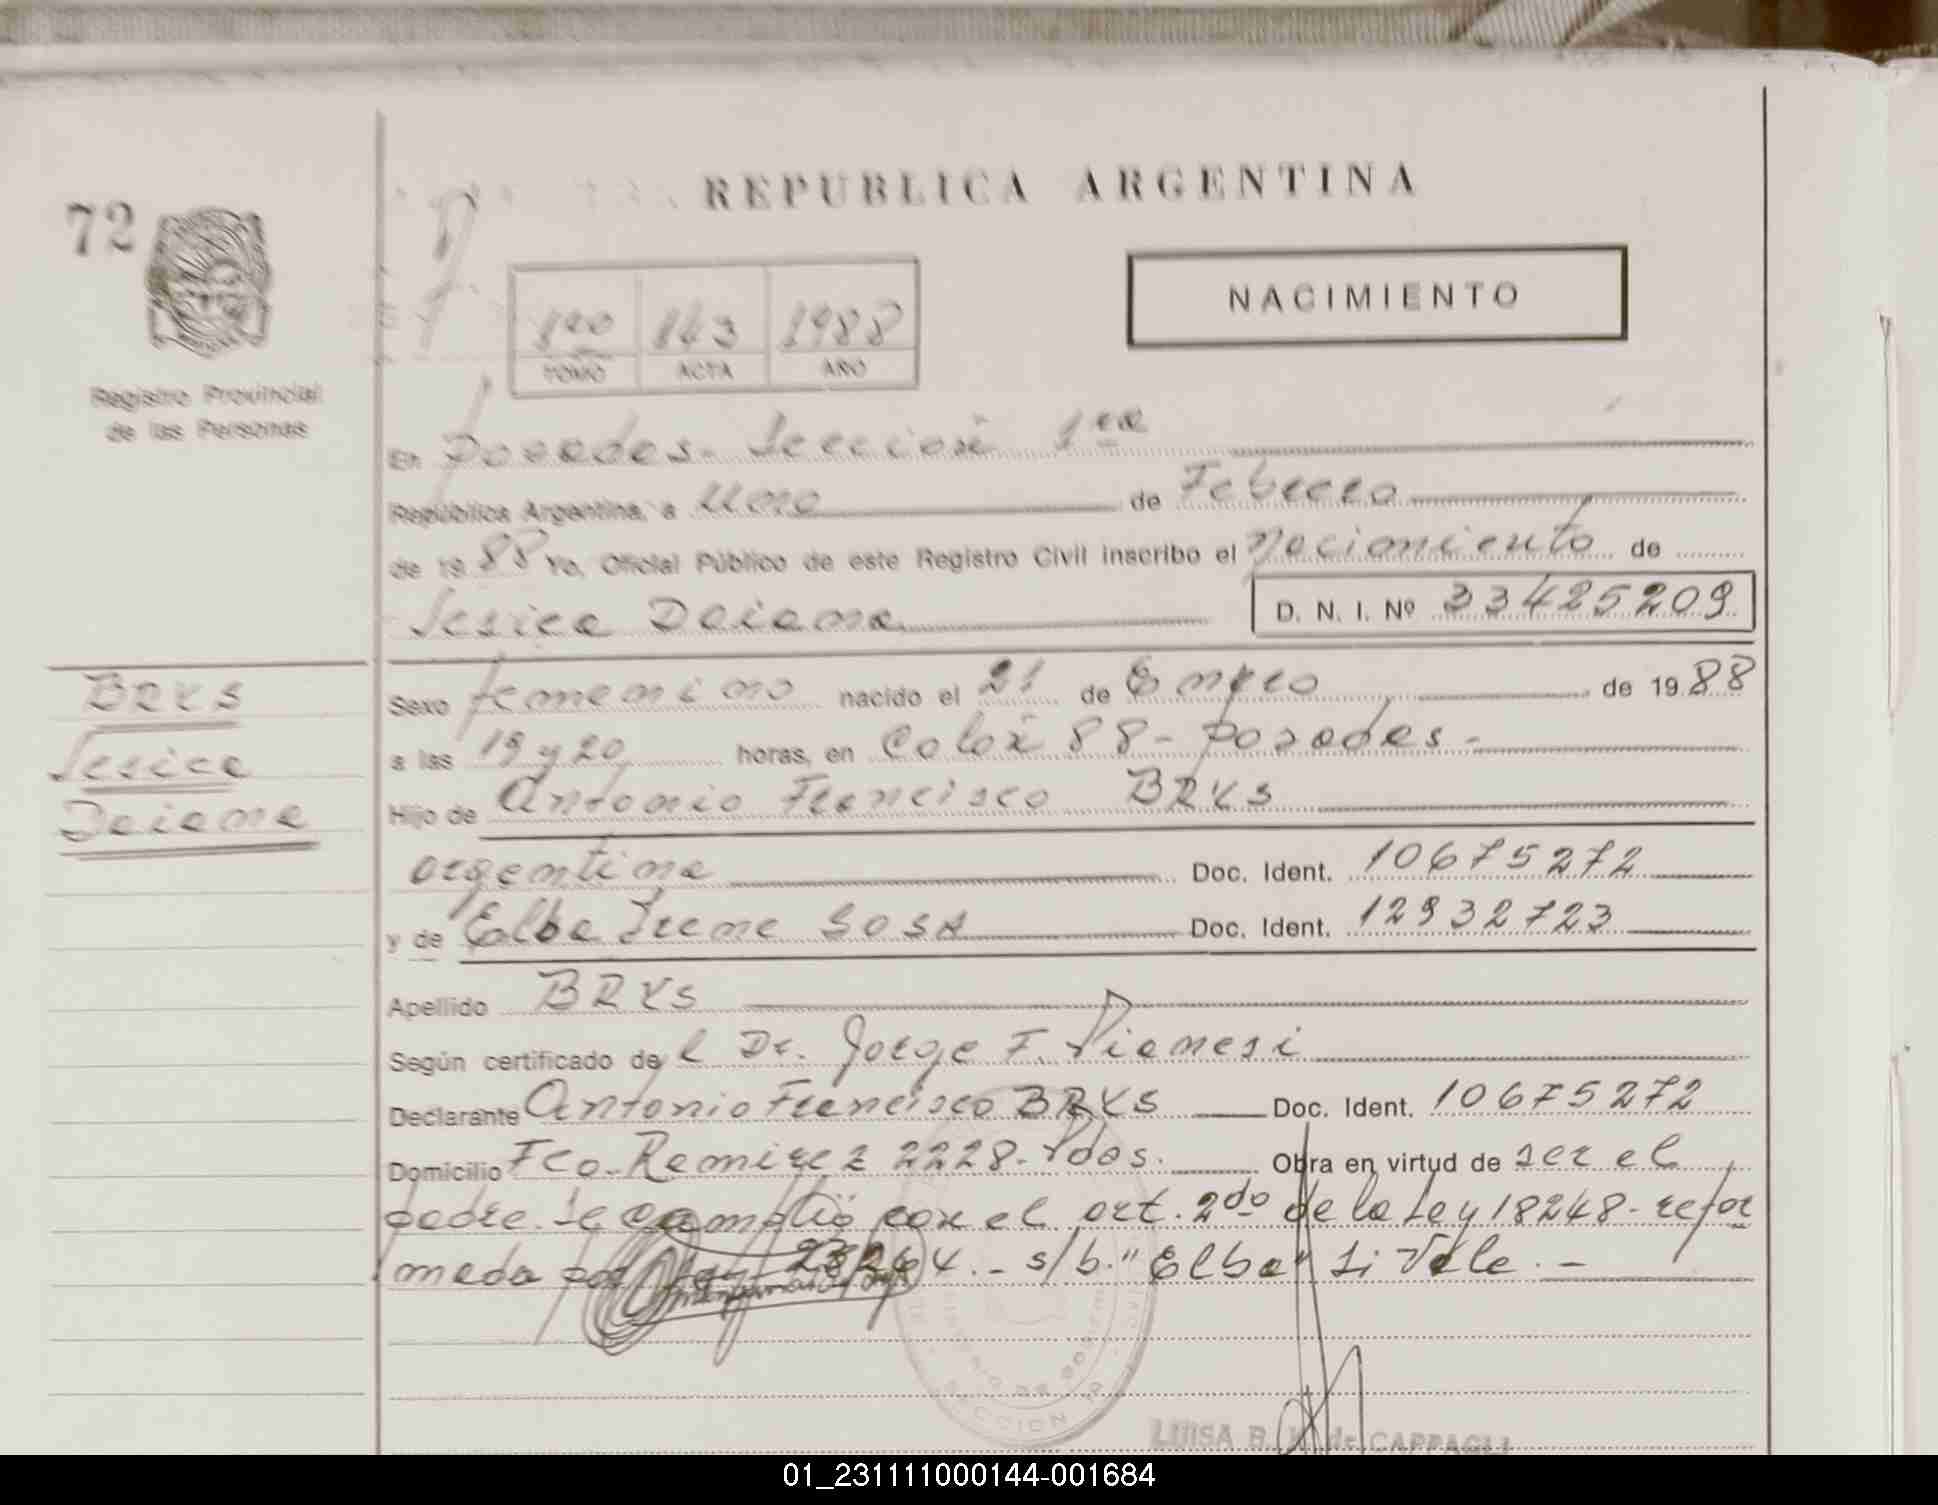 72
REPUBLICA ARGENTINA
NACIMIENTO
1ro 143 1988
TOMO ACTA AÑO
Registro Provincial
de las Personas
En Posadas - Sección 1ra
República Argentina, a Uno de Febrero
de 1988 Yo, Oficial Público de este Registro Civil inscribo el Nacimiento de
Jesica Daiana D. N. I. Nº 33425209
BRYS
Jesica
Daiana
Sexo femenino nacido el 21 de Enero de 1988
a las 19 y 20 horas, en Colón 88 - Posadas -
Hijo de Antonio Francisco BRYS
argentina Doc. Ident. 10675272
y de Elba Irene SOSA Doc. Ident. 12932723
Apellido BRYS
Según certificado del Dr. Jorge F. Pianesi
Declarante Antonio Francisco BRYS Doc. Ident. 10675272
Domicilio Fco. Ramirez 2228 - Pdas. Obra en virtud de ser el
padre. Se cumplió con el art. 2do de la Ley 18248 - refor
mada por Ley 23264. - s/b. "Elba" Si Vale. -
SECCION
LUISA B. de CAPPAGLI
01_231111000144-001684